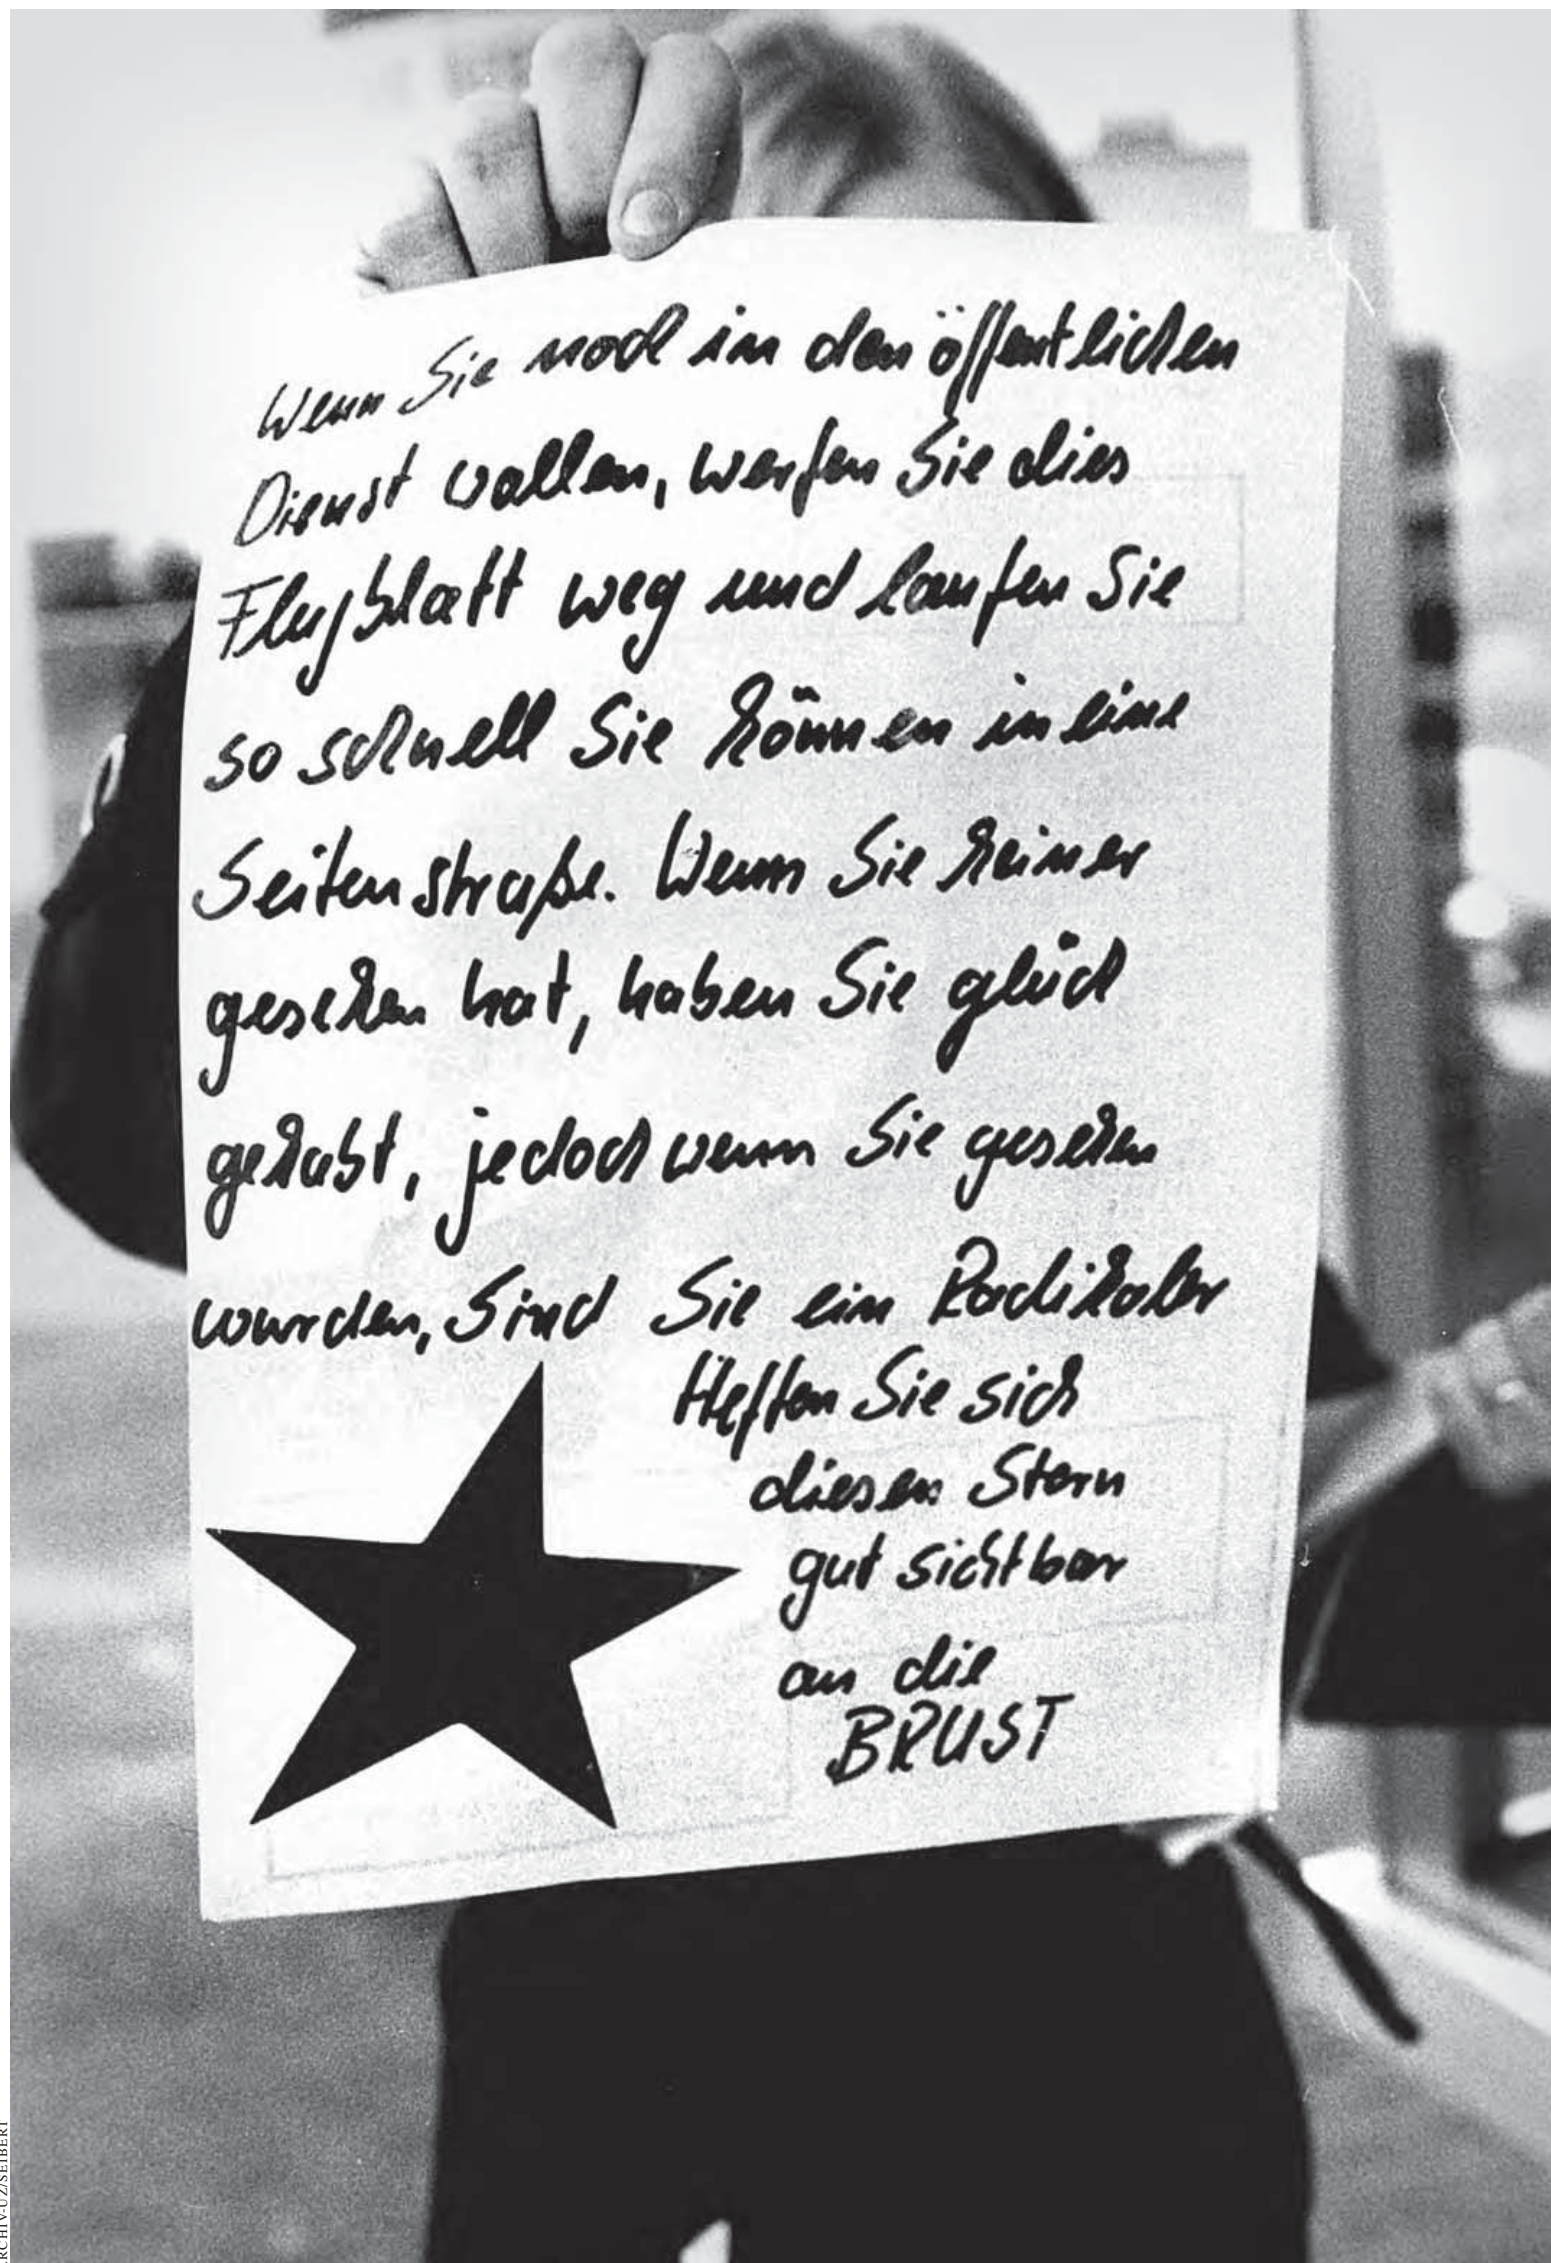 Wenn Sie noch in den öffentlichen
Dienst wollen, werfen Sie dies
Flugblatt weg und laufen Sie
so schnell Sie können in eine
Seitenstraße. Wenn Sie keiner
gesehen hat, haben Sie glück
gehabt, jedoch wenn Sie gesehen
wurden, Sind Sie ein Radikaler
Heften Sie sich
diesen Stern
gut sichtbar
an die
BRUST
ARCHIV-UZ/SEIBERT